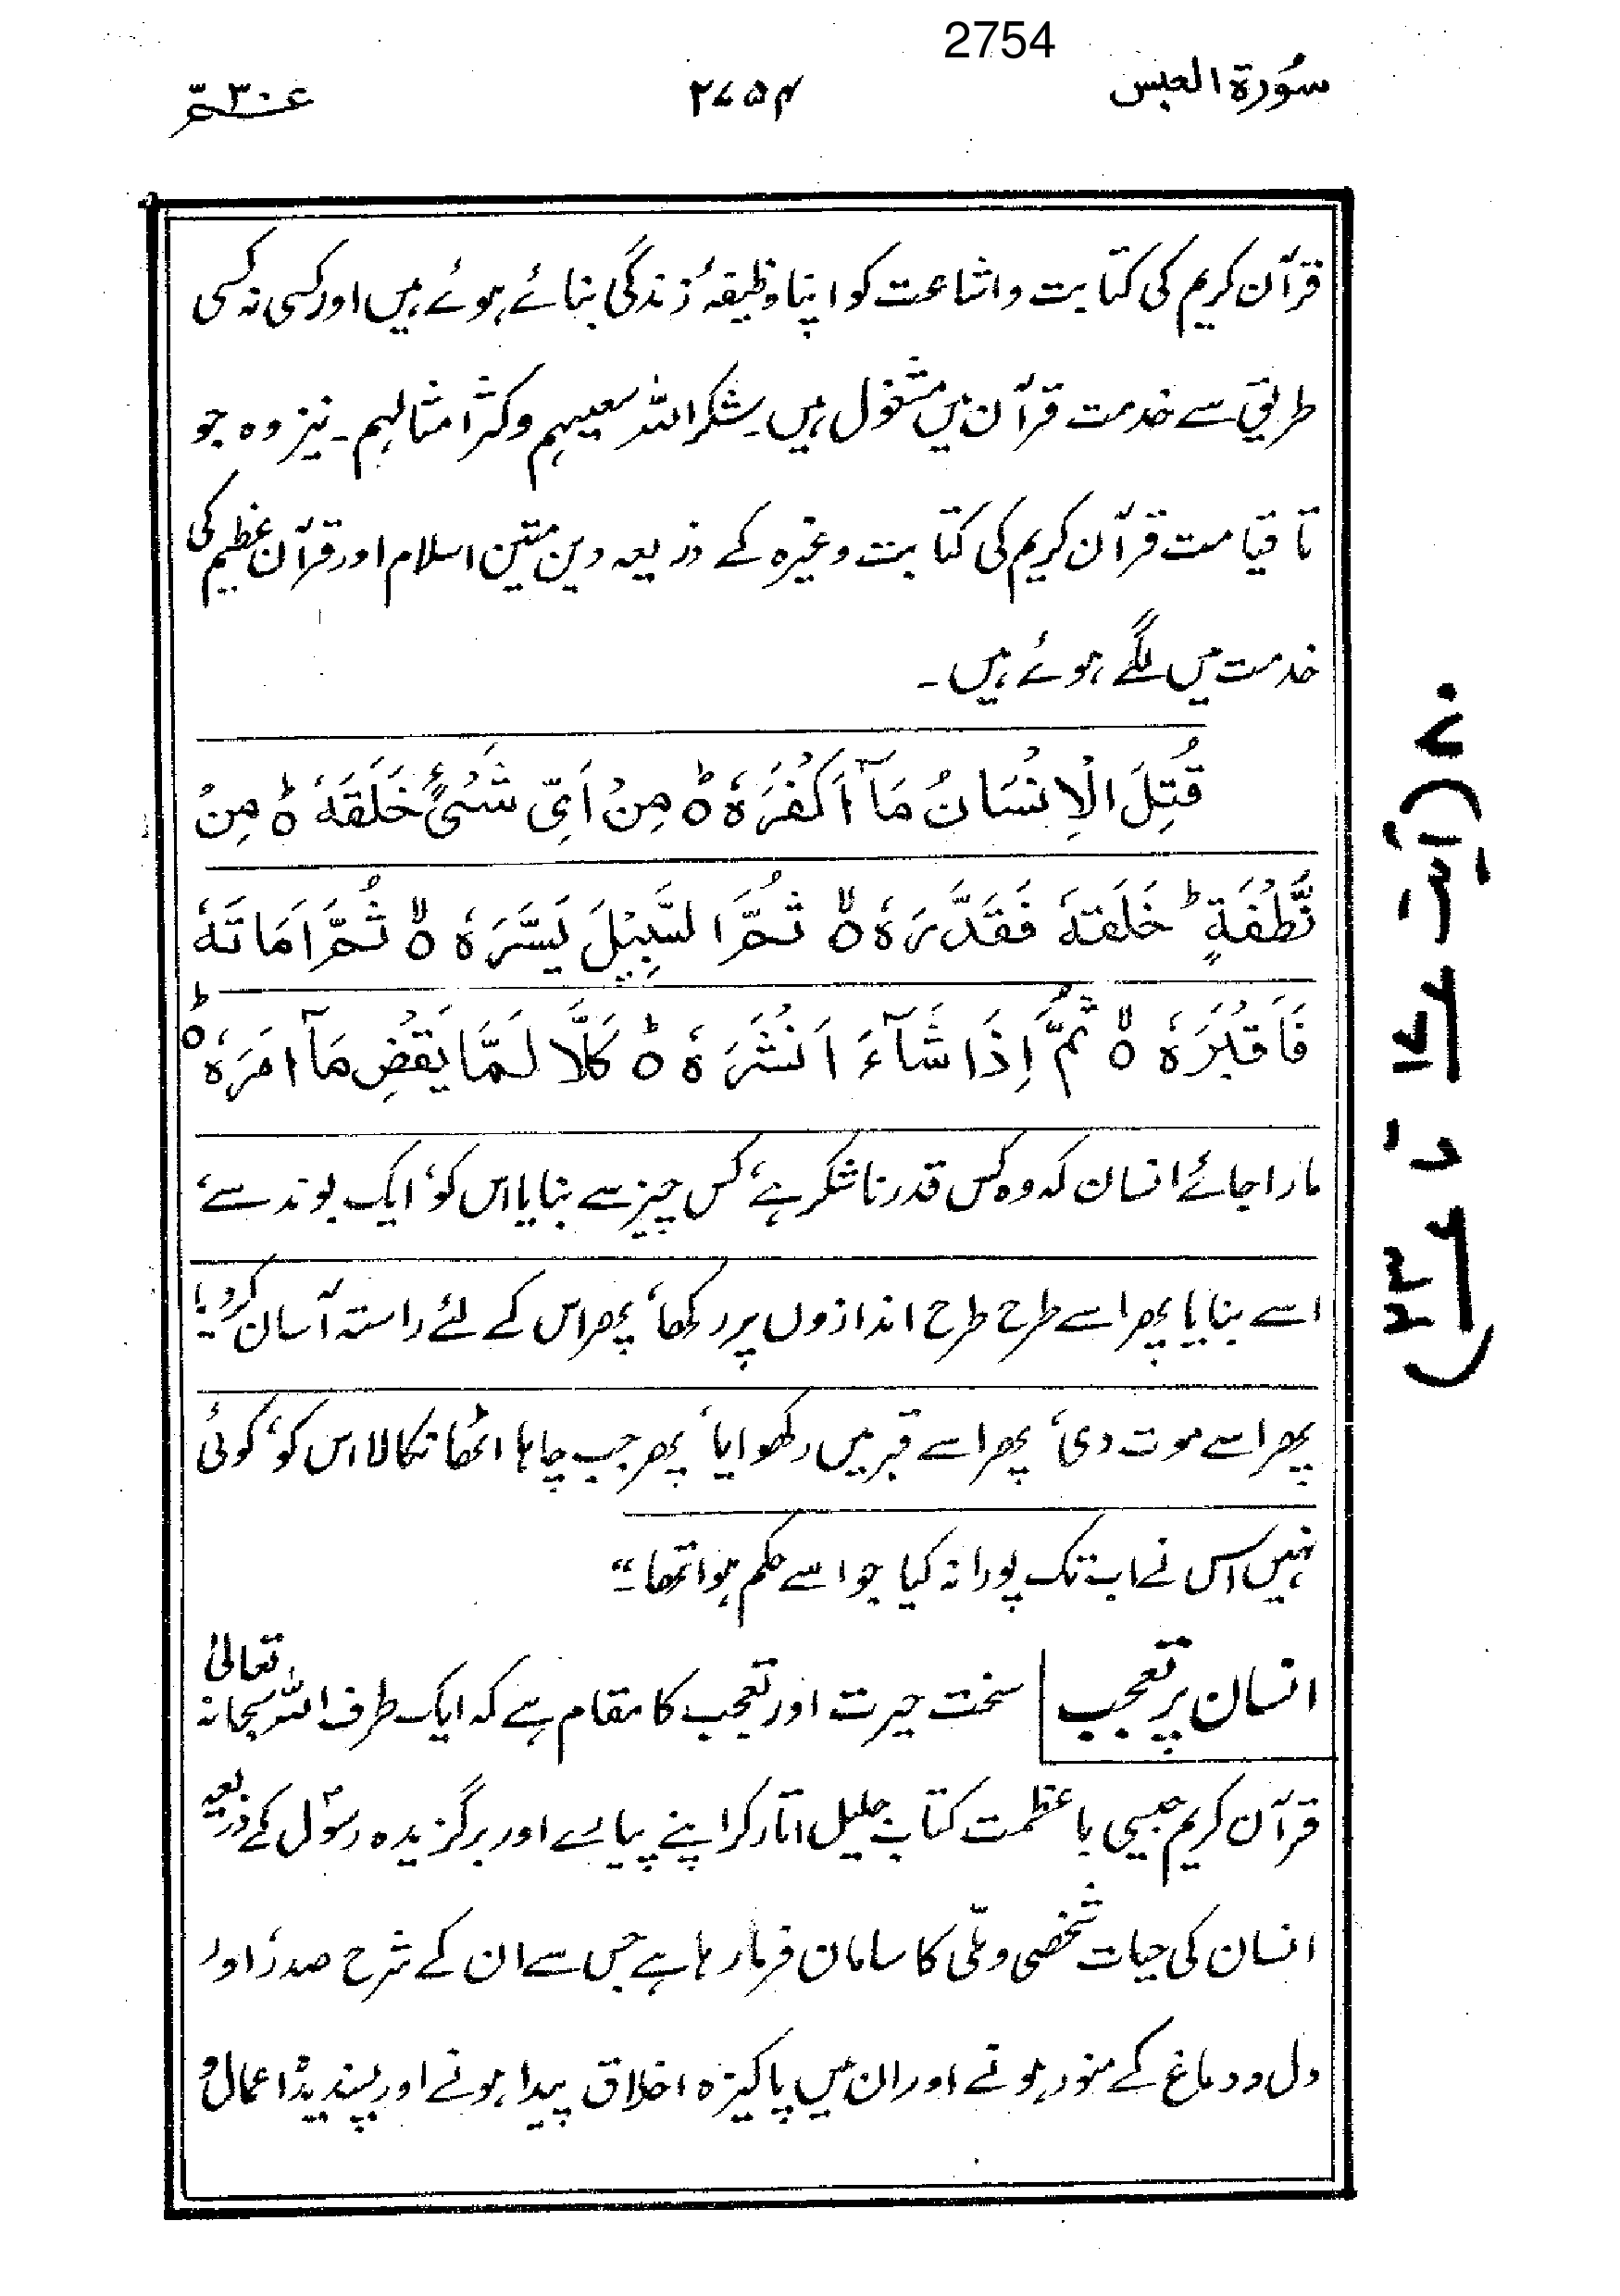 2754
سُورة العبس
۲۷۵۴
عـــمّ ۳۰
قرآن کریم کی کتابت و اشاعت کو اپنا وظیفۂ زندگی بنائے ہوئے ہیں اور کسی نہ کسی
طریق سے خدمت قرآن میں مشغول ہیں۔ شکر اللہ سعیہم و کثر امثالہم۔ نیز وہ جو
تا قیامت قرآن کریم کی کتابت وغیرہ کے ذریعہ دین متین اسلام اور قرآن عظیم کی
خدمت میں لگے ہوئے ہیں۔
قُتِلَ الْاِنْسَانُ مَآ اَكْفُرَهٗ ○ؕ مِنْ اَىِّ شَىْءٍ خَلَقَهٗ ○ؕ مِنْ
نُّطْفَةٍ ؕ خَلَقَهٗ فَقَدَّرَهٗ ○ۙ ثُمَّ السَّبِيْلَ يَسَّرَهٗ ○ۙ ثُمَّ اَمَاتَهٗ
فَاَقْبَرَهٗ ○ۙ ثُمَّ اِذَا شَآءَ اَنْشَرَهٗ ○ؕ كَلَّا لَمَّا يَقْضِ مَآ اَمَرَهٗ ○ؕ
مارا جائے انسان کہ وہ کس قدر ناشکر ہے، کس چیز سے بنایا اس کو، ایک بوند سے،
اسے بنایا پھر اسے طرح طرح اندازوں پر رکھا، پھر اس کے لئے راستہ آسان کر دیا،
پھر اسے موت دی، پھر اسے قبر میں رکھوایا، پھر جب چاہا اٹھا نکالا اس کو، کوئی
نہیں اس نے اب تک پورا نہ کیا جو اسے حکم ہوا تھا۔“
انسان پر تعجب | سخت حیرت اور تعجب کا مقام ہے کہ ایک طرف اللہ سبحانہ تعالیٰ
قرآن کریم جیسی باعظمت کتاب جلیل اتار کر اپنے پیارے اور برگزیدہ رسولؐ کے ذریعہ
انسان کی حیات شخصی و ملّی کا سامان فرما رہا ہے جس سے ان کے شرح صدر، اور
دل و دماغ کے منور ہونے اور ان میں پاکیزہ اخلاق پیدا ہونے اور پسندیدہ اعمال و
۸۰ (آیت ۱۷ تا ۲۳)